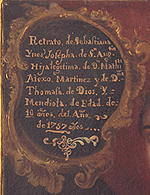 Retrato, de Sebastiana
Ynes Josepha. de S. Aug.
Hija legitima, de D. Math.
Alexo, Martinez y de D.ª
Thomasa. de Dios, Y
Mendiola. de Edad. de
16 años. del Año.
de 1757 años